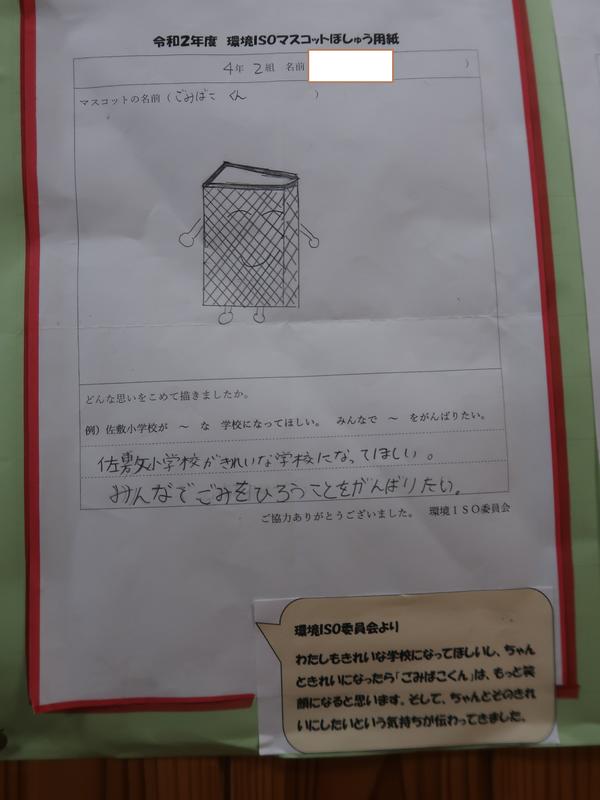 令和2年度 環境ISOマスコットぼしゅう用紙
4年 2組 名前 )
マスコットの名前(ごみばこ くん )
どんな思いをこめて描きましたか。
例)佐敷小学校が ～ な 学校になってほしい。 みんなで ～ をがんばりたい。
佐敷小学校がきれいな学校になってほしい。
みんなでごみをひろうことをがんばりたい。
ご協力ありがとうございました。 環境ISO委員会
環境ISO委員会より
わたしもきれいな学校になってほしいし、ちゃん
ときれいになったら「ごみばこくん」は、もっと笑
顔になると思います。そして、ちゃんとそのきれ
いにしたいという気持ちが伝わってきました。